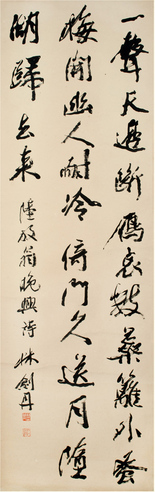 一聲天邊斷雁哀數蕊籬外蚤
梅開幽人耐冷倚門久送月墮
湖歸去來 陸放翁晚興詩 林劍丹